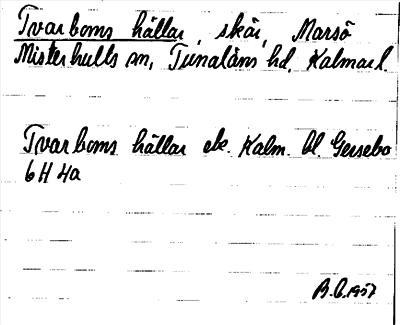 Tvarboms hällar, skär, Marsö
Misterhults sn, Tunaläns hd, Kalmar l.
Tvarboms hällar ek. Kalm. bl. Gersebo
6H 4a
B.C. 1957